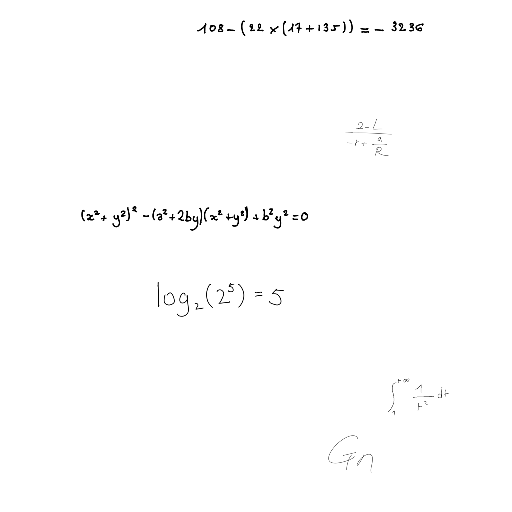 108 - (22 × (17 + 135)) = - 3236
(x² + y²)² - (a² + 2by)(x² + y²) + b²y² = 0
log₂(2⁵) = 5
∫₁^{+∞} 1/t² dt
Gn